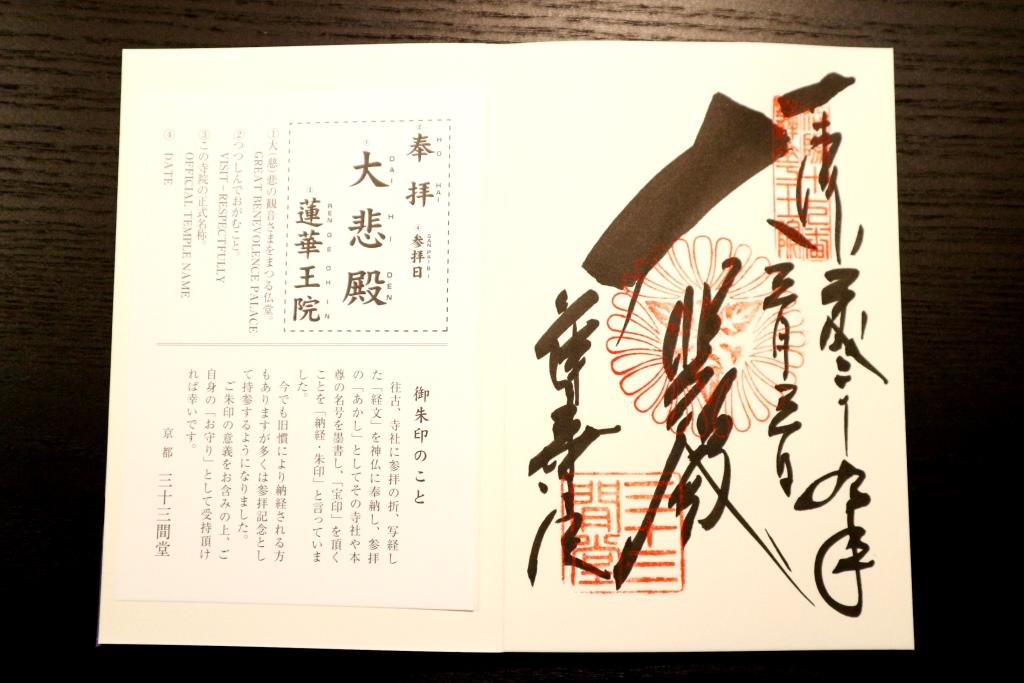 奉拝
平成二十九年
三月三日
大悲殿
蓮華王院
洛陽十七番
三十三間堂
② 奉拝
HO HAI
④ 参拝日
SANPAIBI
① 大悲殿
DAI HI DEN
③ 蓮華王院
REN GE OH IN
①大(慈)悲の観音さまをまつる仏堂。
GREAT BENEVOLENCE PALACE
②つつしんでおがむこと。
VISIT−RESPECTFULLY
③この寺院の正式名称。
OFFICIAL TEMPLE NAME
④ DATE
御朱印のこと
往古、寺社に参拝の折、写経し
た「経文」を神仏に奉納し、参拝
の「あかし」としてその寺社や本
尊の名号を墨書し、「宝印」を頂く
ことを「納経・朱印」と言っていま
した。
今でも旧慣により納経される方
もありますが多くは参拝記念とし
て持参するようになりました。
ご朱印の意義をお含みの上、ご
自身の「お守り」として受持頂け
れば幸いです。
京都 三十三間堂